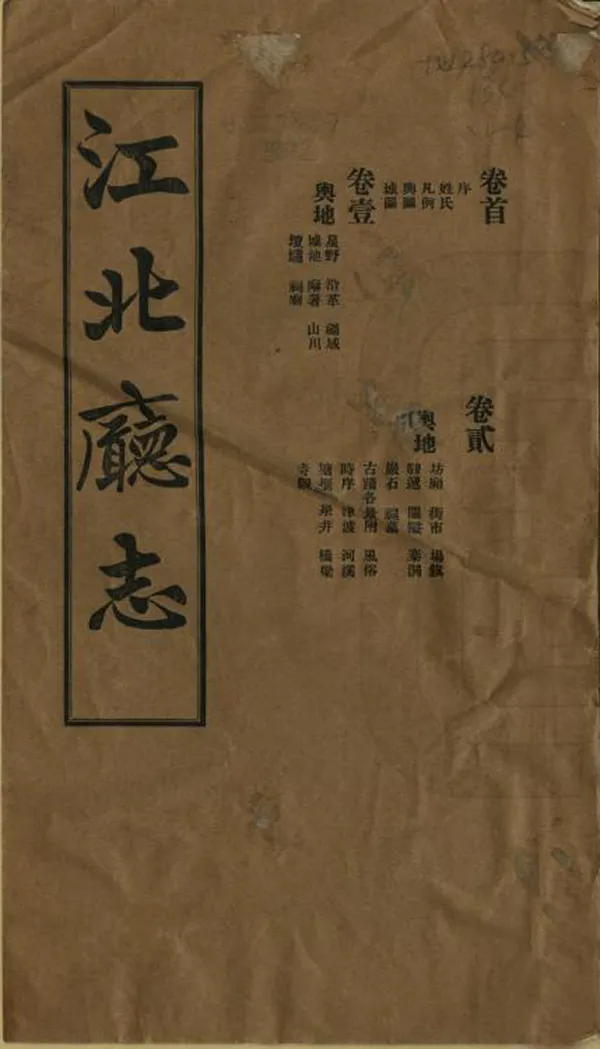 江北廳志
卷首
序
姓氏
凡例
輿圖
城圖
卷壹
輿地
星野 沿革 疆域
城池 廨署 山川
壇壝 祠廟
卷貳
輿地
坊廂 街市 場鎮
郵遞 關隘 寨洞
巖石
古蹟各景附 風俗
時序 津渡 河溪
塘堰 泉井 橋梁
寺觀